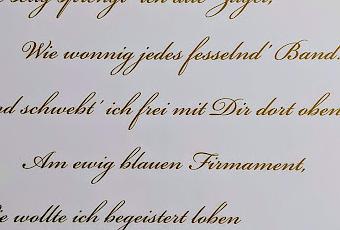 selig sprengt' ich alle Zügel,
Wie wonnig jedes fesselnd' Band.
schwebt' ich frei mit Dir dort oben
Am ewig blauen Firmament,
wollte ich begeistert loben